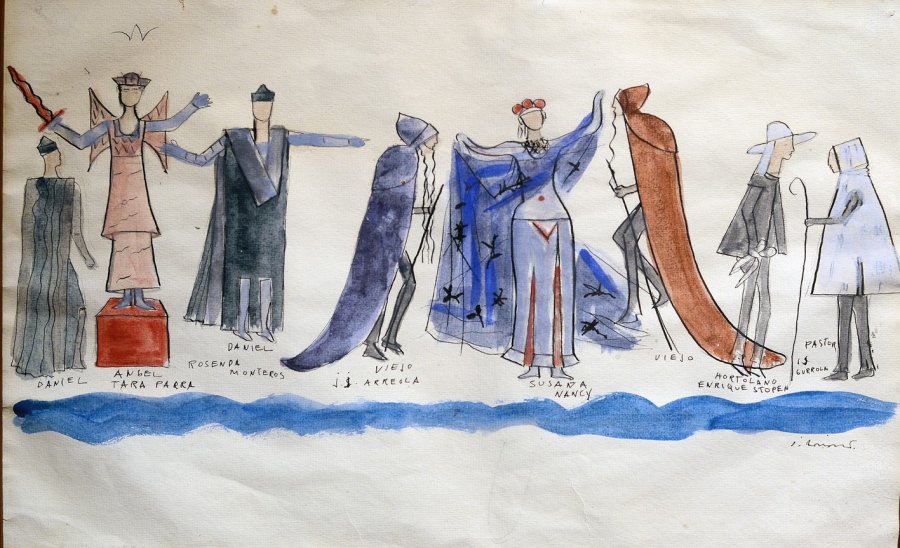 DANIEL
ANGEL
TARA PARRA
DANIEL
ROSENDA
MONTEROS
VIEJO
J.J. ARREOLA
SUSANA
NANCY
VIEJO
HORTOLANO
ENRIQUE STOPEN
PASTOR
J.J.
GURROLA